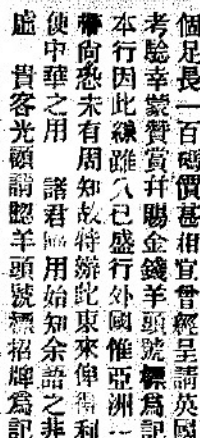 個足長一百碼價甚相宜曾經呈請英國
考驗幸蒙贊賞幷賜金錢羊頭號標爲記
本行因此線雖久已盛行外國惟亞洲一
帶尙恐未有周知故特辦此東來俾得利
便中華之用 諸君臨用始知余語之非
貴客光顧請認羊頭號標招牌爲記